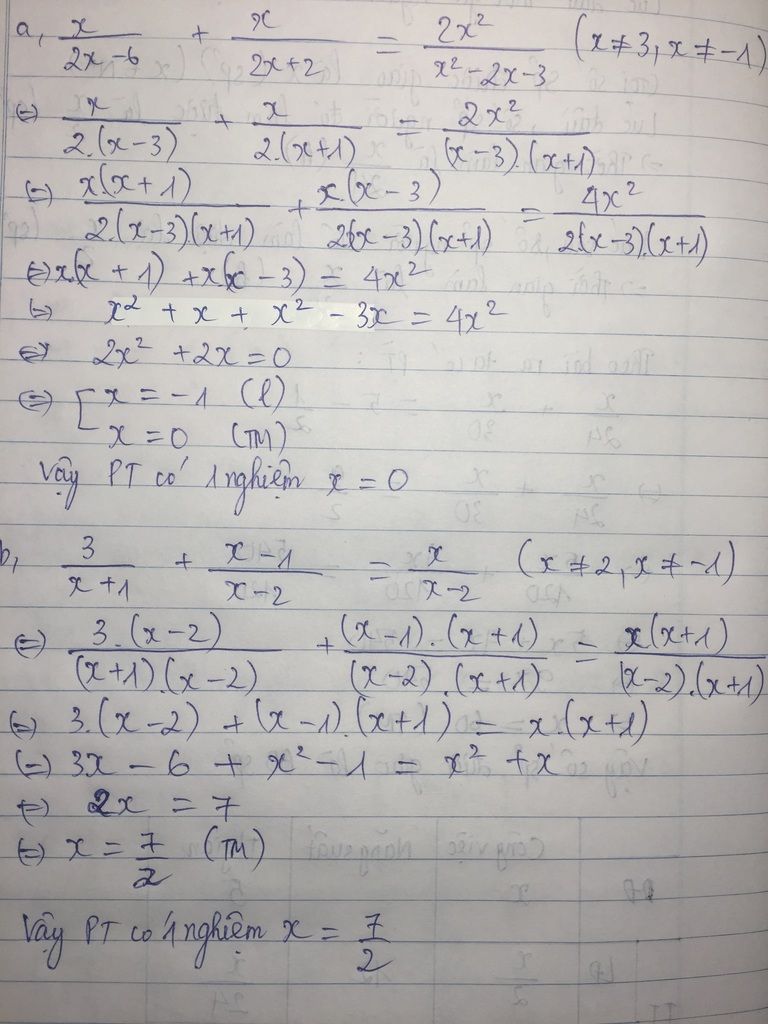 a, x/(2x-6) + x/(2x+2) = 2x²/(x²-2x-3) (x≠3, x≠-1)
⇔ x/(2.(x-3)) + x/(2.(x+1)) = 2x²/((x-3).(x+1))
⇔ x(x+1)/(2.(x-3)(x+1)) + x.(x-3)/(2(x-3).(x+1)) = 4x²/(2(x-3).(x+1))
⇔ x.(x+1) + x(x-3) = 4x²
⇔ x² + x + x² - 3x = 4x²
⇔ 2x² + 2x = 0
⇔ [ x = -1 (l)
x = 0 (TM)
Vậy PT có 1 nghiệm x = 0
b, 3/(x+1) + (x-1)/(x-2) = x/(x-2) (x≠2, x≠-1)
⇔ 3.(x-2)/((x+1).(x-2)) + (x-1).(x+1)/((x-2).(x+1)) = x(x+1)/((x-2).(x+1))
⇔ 3.(x-2) + (x-1).(x+1) = x.(x+1)
⇔ 3x - 6 + x² - 1 = x² + x
⇔ 2x = 7
⇔ x = 7/2 (TM)
Vậy PT có 1 nghiệm x = 7/2